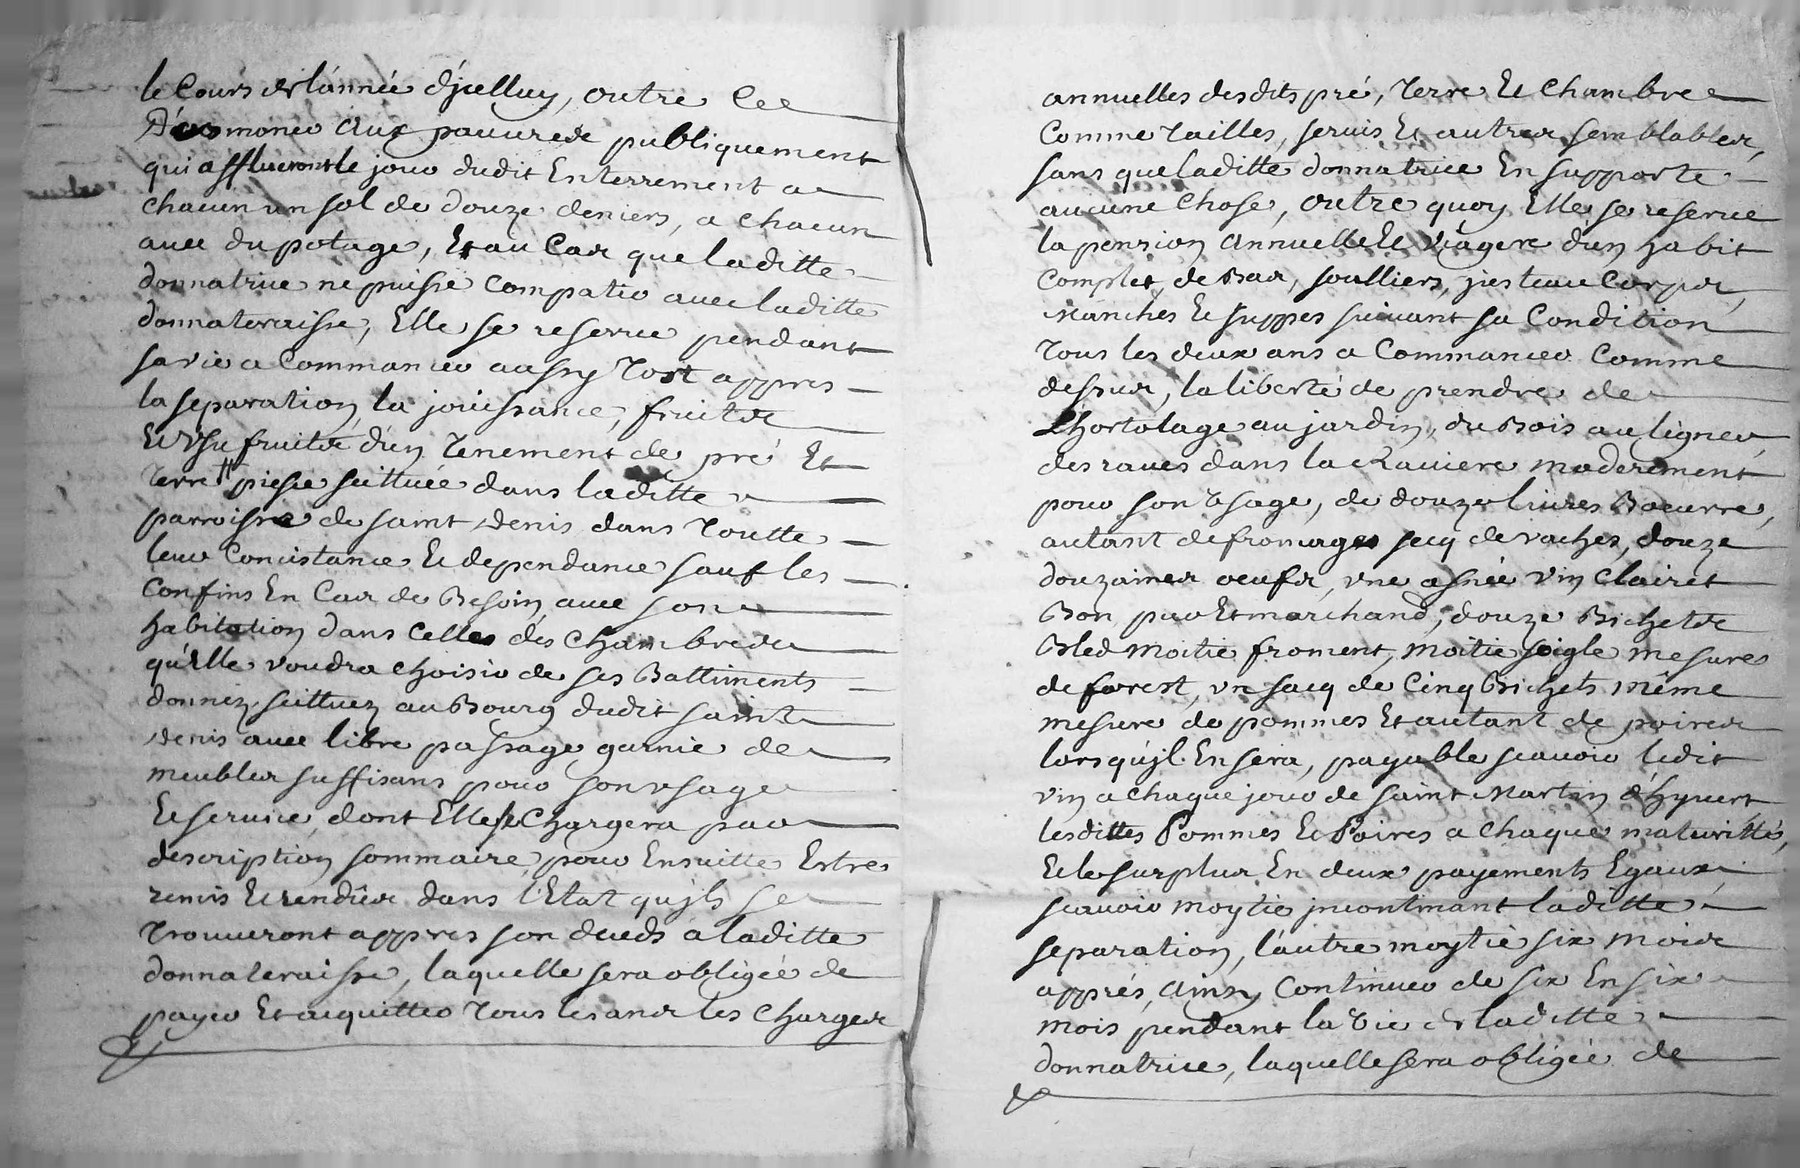 le Cours de l'année d'jcelluy, outre ce
d'aumoner aux pauvres publiquement
qui afflueront le jour dudit Enterrement a
chacun un sol de douze deniers, a chacun
avec du potage, Et au Cas que laditte
donnatrice ne puisse Compatir avec laditte
donnateraisse, Elle se reserve pendant
sa vie a Commancer aussy Tost appres
la separation, la jouissance, fruits
Et Usufruits d'un Tenement de pré Et
Terre piesse scittuée dans laditte
parroisse de saint denis dans Toutte
leur Concistance Et dependance sauf les
Confins En Cas de Besoin, avec son
habitation dans Celles des Chambres
qu'elle voudra choisir de ses Battiments
donnez scittuez au Bourg dudit saint
denis avec libre passage, garnie de
meubles suffisans pour son usage
Et service, dont Elle se Chargera par
description sommaire, pour Ensuitte Estres
remis Et rendus dans l'Etat qu'jls se
Trouveront appres son decéds a laditte
donnateraisse, laquelle sera obligée de
payer Et acquitter Tous les ans les Charges
annuelles desdits pré, Terre Et Chambre
Comme Tailles, servis Et autres semblables,
sans que laditte donnatrice En supporte
aucune Chose, outre quoy Elle se reserve
la penzion annuelle Et viagere d'un habit
Complet, de Bas, soulliers, justeaucorps,
Manches Et juppes suivant sa Condition
Tous les deux ans a Commancer Comme
dessus, la liberté de prendre de
L'hortolage au jardin, du Bois au ligner,
des raves dans la Raviere moderement
pour son Usage, de douze livres Baeurre,
autant de fromages secq de vaches, douze
douzaines oeufs, une asnée vin Clairet
Bon pur Et marchand, douze Bichets
Bled moitie froment, moitie seigle mesure
de forest, un sacq de Cinq Bichets même
mesure de pommes Et autant de poires
lorsqu'jl En sera, payable scavoir ledit
vin a chaque jour de saint Martin d'hyvert
lesdittes Pommes Et Poires a Chaque maturittés,
Et le surplus En deux payements Egaux,
scavoir moytie jncontinant laditte
separation, l'autre moytié six mois
apprés, ainsy Continuer de six En six
mois pendant la Vie de laditte
donnatrice, laquelle sera obligée de